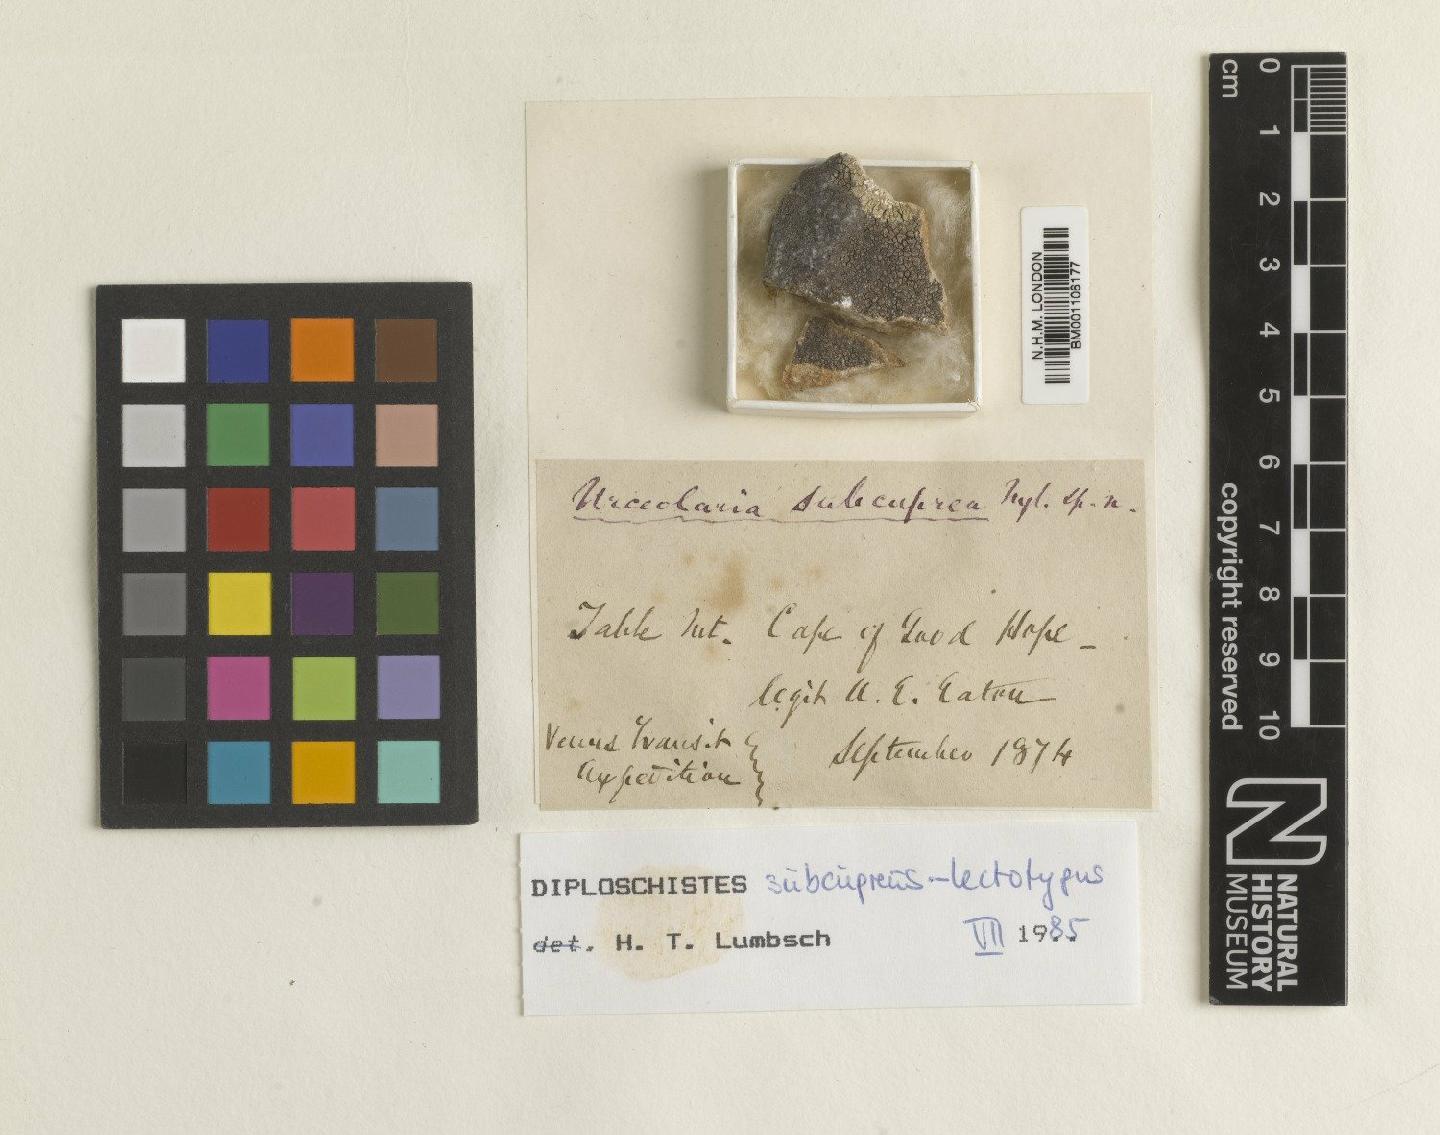 N.H.M. LONDON
BM001106177
Urceolaria subcuprea Nyl. sp. n.
Table Mt. Cape of Good Hope -
legit A. E. Eaton
Venus Transit
Expedition
September 1874
DIPLOSCHISTES subcupreus - lectotypus
det. H. T. Lumbsch VII 1985
cm
0
1
2
3
4
5
6
7
8
9
10
copyright reserved
NATURAL
HISTORY
MUSEUM